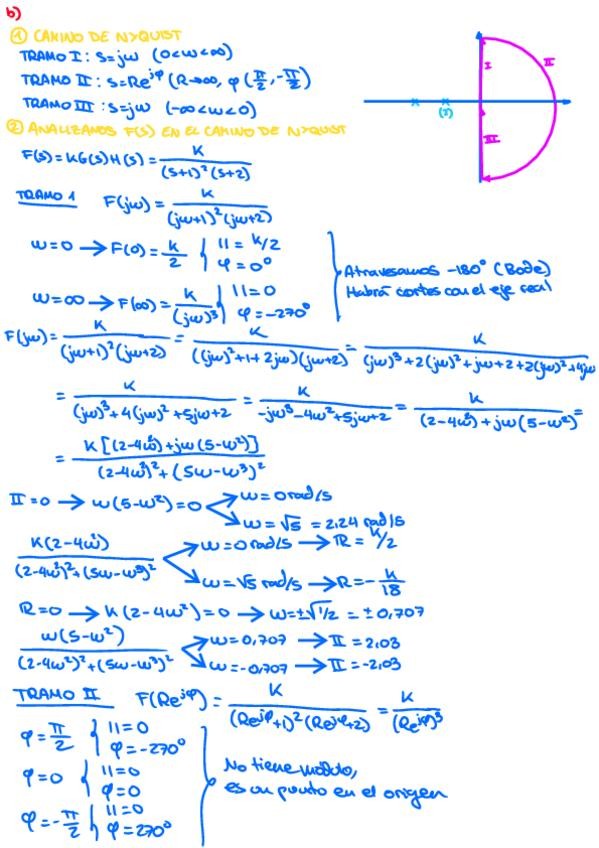 b)
① CAMINO DE NYQUIST
TRAMO I : S=jω (0<ω<∞)
TRAMO II : S=Re^jφ (R→∞, φ(π/2, -π/2)
TRAMO III : S=jω (-∞<ω<0)
I
II
III
(2)
② ANALIZAMOS F(S) EN EL CAMINO DE NYQUIST
F(s)=KG(s)H(s)= K/((s+1)²(s+2))
TRAMO 1 F(jω)= K/((jω+1)²(jω+2))
ω=0 → F(0)= K/2 { ||=K/2 φ=0º
ω=∞ → F(∞)= K/(jω)³ { ||=0 φ=-270º
Atravesamos -180º (Bode)
Habrá cortes con el eje real
F(jω)= K/((jω+1)²(jω+2)) = K/(((jω)²+1+2jω)(jω+2)) = K/((jω)³+2(jω)²+jω+2+2(jω)²+4jω
= K/((jω)³+4(jω)²+5jω+2) = K/(-jω³-4ω²+5jω+2) = K/((2-4ω²)+jω(5-ω²)) =
= K[(2-4ω²)+jω(5-ω²)]/((2-4ω²)²+(5ω-ω³)²)
II=0 → ω(5-ω²)=0 ω=0rad/s
ω=√5 = 2.24 rad/s
K(2-4ω²)/((2-4ω²)²+(5ω-ω³)²) ω=0 rad/s → R=K/2
ω=√5 rad/s → R=-K/18
R=0 → K(2-4ω²)=0 → ω=±√1/2 = ±0,707
ω(5-ω²)/((2-4ω²)²+(5ω-ω³)²) ω=0,707 → II=2,03
ω=-0,707 → II=-2,03
TRAMO II F(Re^jφ)= K/((Re^jφ+1)²(Re^jφ+2)) = K/(Re^jφ)³
φ=π/2 { ||=0 φ=-270º
φ=0 { ||=0 φ=0
φ=-π/2 { ||=0 φ=270º
No tiene módulo,
es un punto en el origen